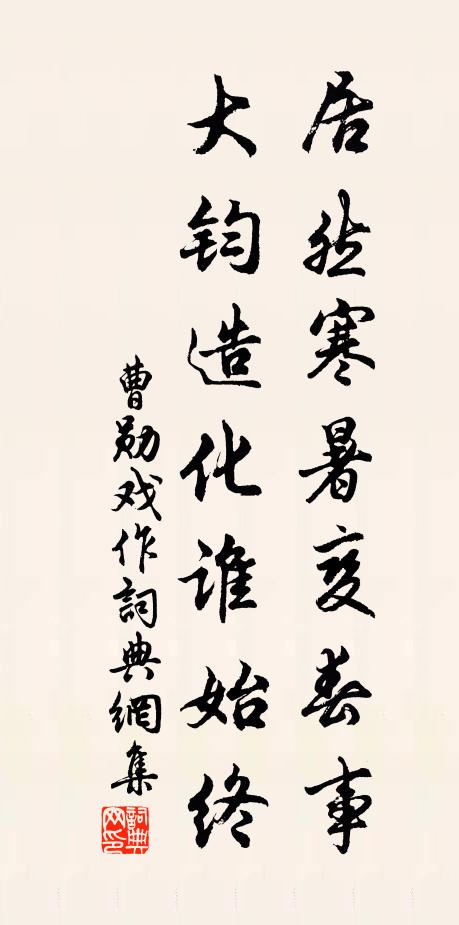 居然寒暑变春事
大钧造化谁始终
曹勋戏作詞典網集
詞典網印